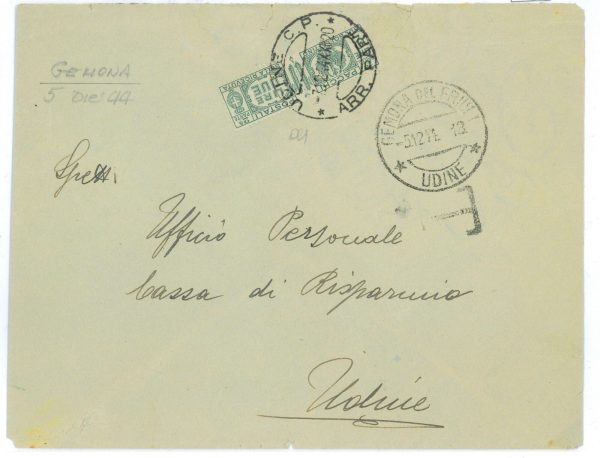 GEMONA
5 DIC 44
UDINE C.P.
ARR. PART.
GEMONA DEL FRIULI
-5.12.44. 12
* UDINE *
T
Spett.
Ufficio Personale
Cassa di Risparmio
Udine